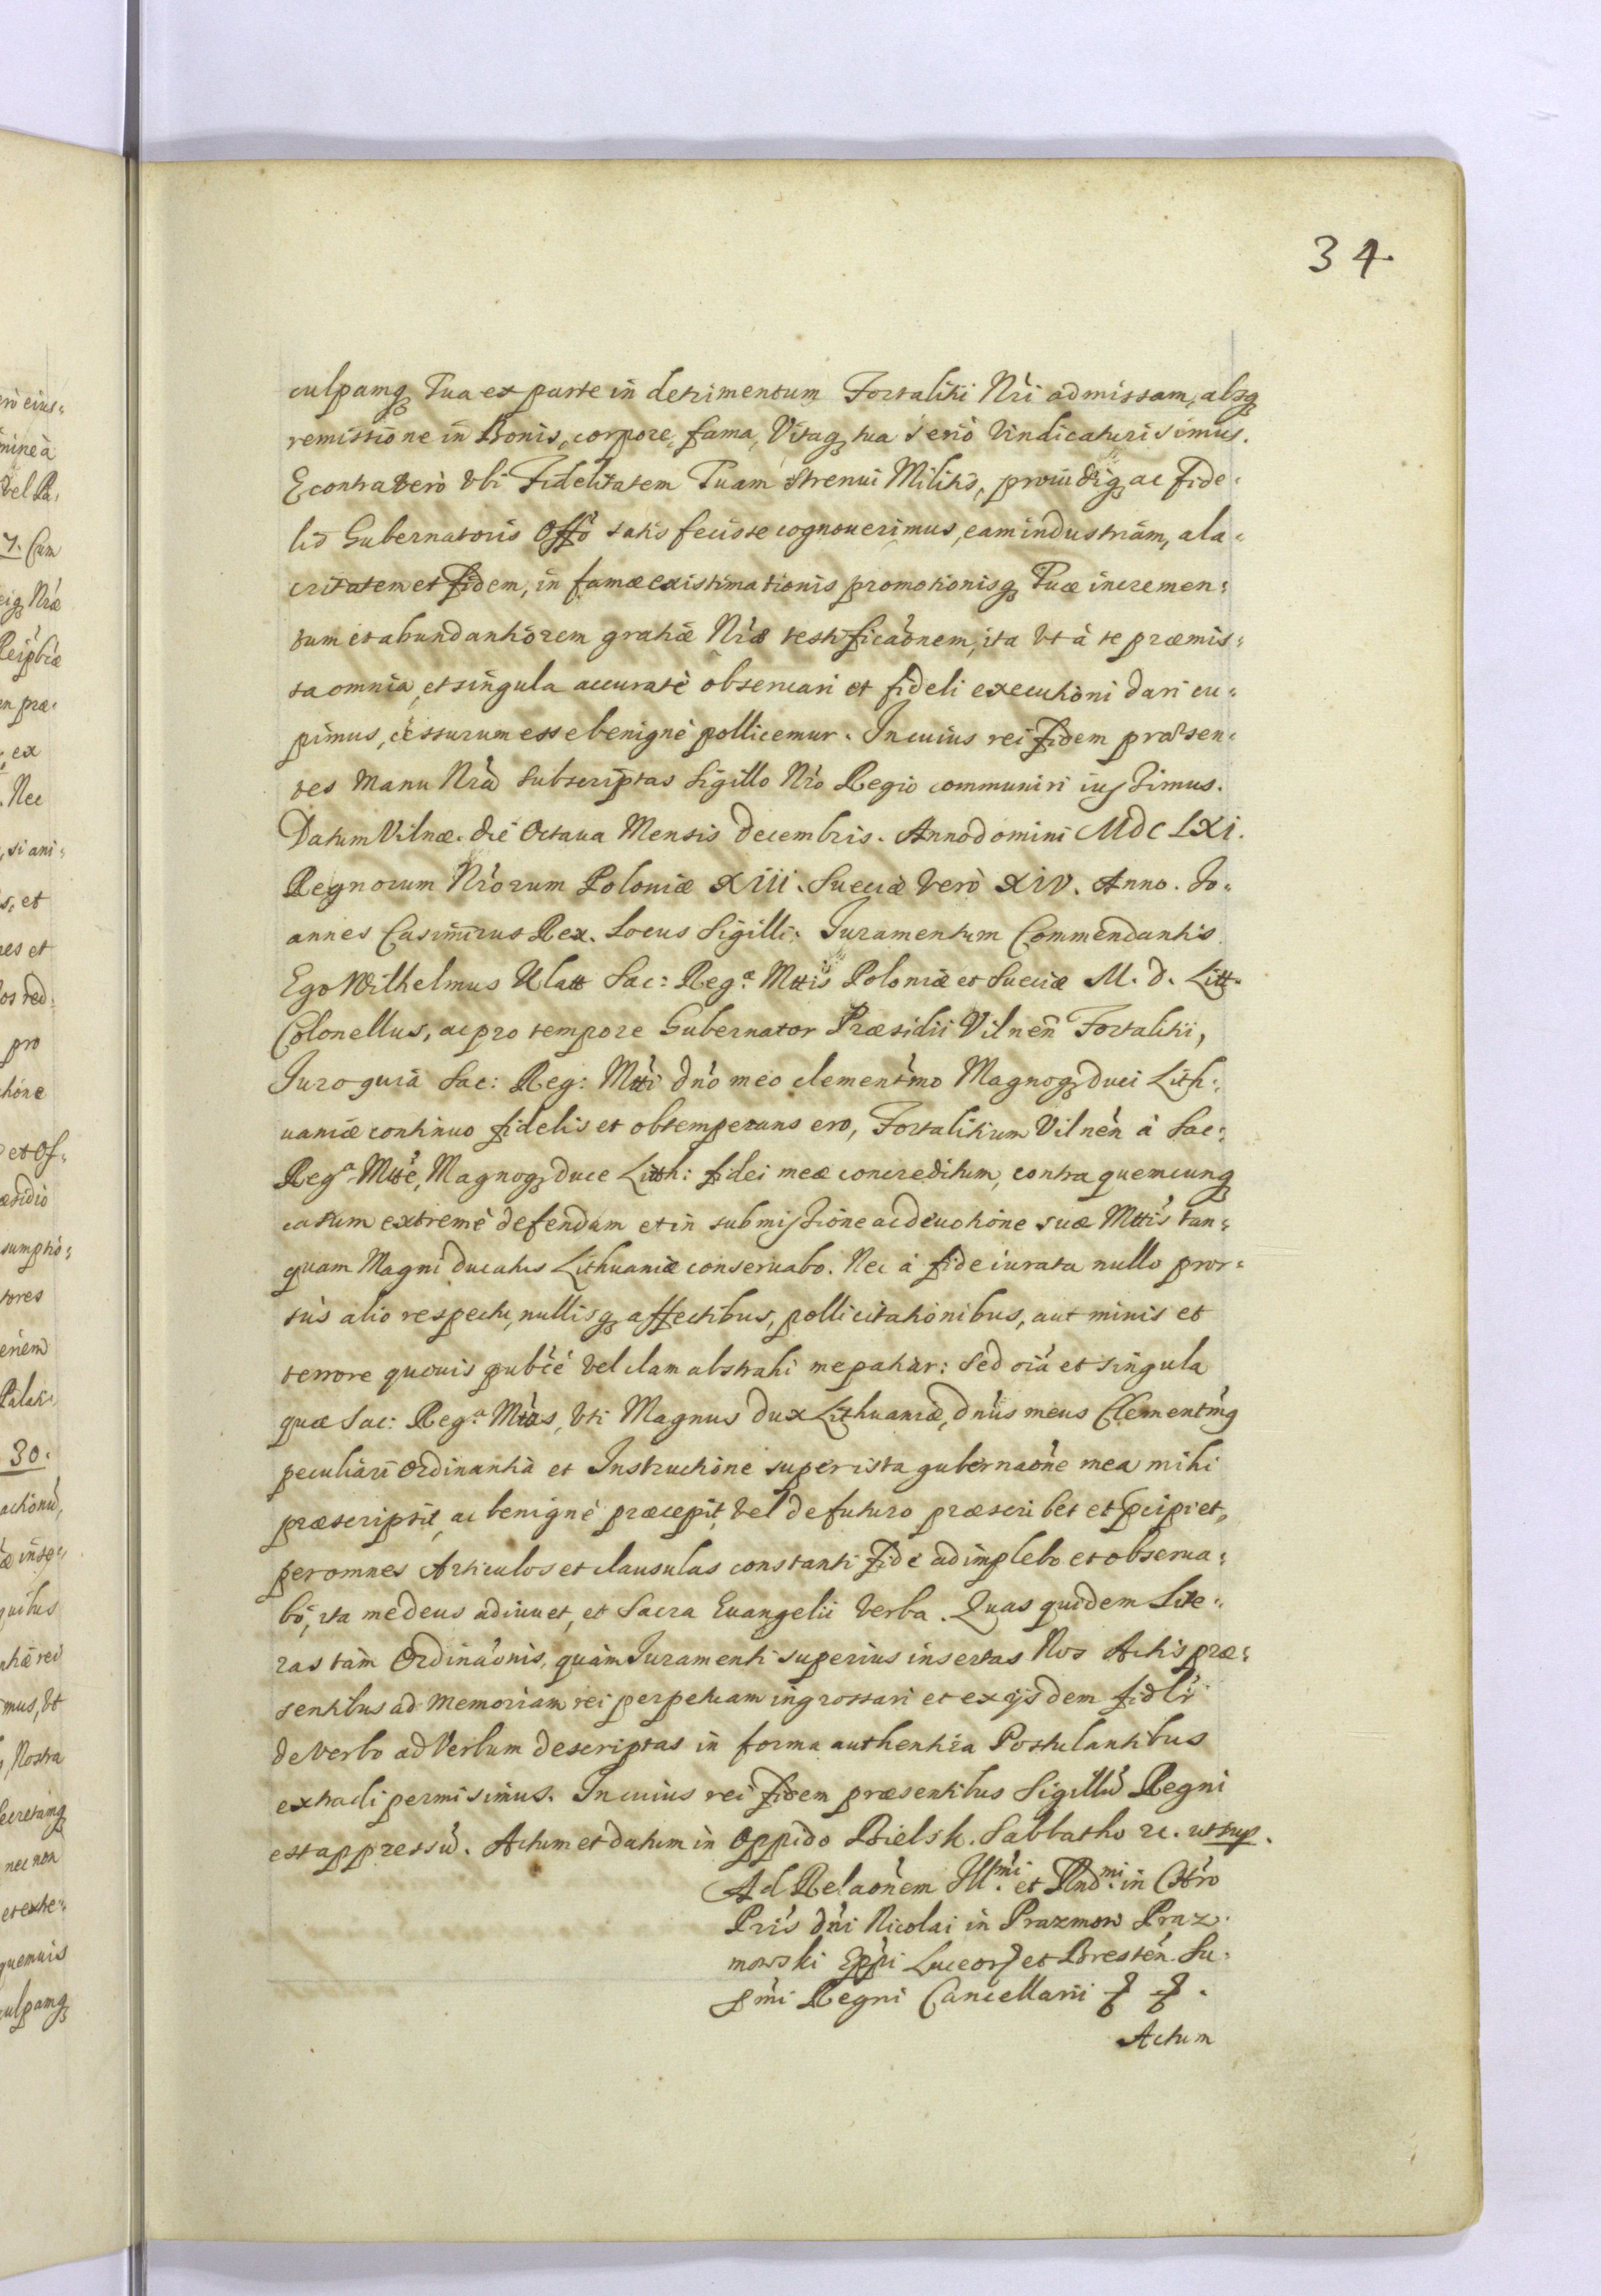 34.
culpamq tua ex parte in detrimentum Fortalitii Nri admissam, absq
remissione in Bonis, corpore, fama, Vitaq tua serio Vindicaturi simus.
Econtra vero Vbi Fidelitatem Tuam strenui Militis, prouidiq ac fide-
lis Gubernatoris Offo satis fecisse cognouerimus, eam industriam, ala-
critatem et fidem, in famæ existimationis promotionisq Tuæ incremen-
tum et abundantiorem gratiæ Nræ testificaonem, ita Vt à te præmis-
sa omnia, et singula accuratè obseruari et fideli executioni dari cu-
pimus, cessurum esse benignè pollicemur. In cuius rei fidem præsen-
tes Manu Nra Subscriptas Sigillo Nro Regio communiri iussimus.
Datum Vilnæ. die Octaua Mensis Decembris. Anno domini MdC LXI.
Regnorum Nrorum Poloniæ XIII. Sueciæ Verò XIV. Anno. Jo-
annes Casimirus Rex. Locus Sigilli. Juramentum Commendantis.
Ego Wilhelmus Ulatt Sac: Reg.a Mttis Poloniæ et Sueciæ M. D. Litt.
Colonellus, ac pro tempore Gubernator Præsidii Vilnen Fortalitii,
Juro quia Sac: Reg: Mtti dno meo clementmo Magnoq duci Lith-
uaniæ continuo fidelis et obtemperans ero, Fortalitium Vilnen à Sac:
Reg.a Mtte, Magnoq duce Litth: fidei meæ concreditum, contra quemcunq
casum extremè defendam et in submissione ac deuotione suæ Mttis tan-
quam Magni ducatus Lithuaniæ conseruabo. Nec à fide iurata nullo pror-
sus alio respectu, nullisq affectibus, pollicitationibus, aut minis et
terrore quouis publce Vel clam abstrahi me patiar: Sed oia et singula
quæ Sac: Reg.a Mttas, Vti Magnus dux Lithuaniæ, dnus meus Clementmg
peculiari Ordinantia et Instructione super ista gubernaone mea mihi
præscripsit, ac benignè præcepit, Vel de futuro præscribet et pcipiet,
per omnes Articulos et clausulas constanti fide adimplebo et obserua-
bo, ita me deus adiuuet, et Sacra Euangelii Verba. Quas quidem Lite-
ras tam Ordinaonis, quàm Juramenti superius insertas Nos Actis præ-
sentibus ad Memoriam rei perpetuam ingrossari et ex ijsdem fidlr
de Verbo ad Verbum descriptas in forma authentica Postulantibus
extradi permisimus. In cuius rei fidem præsentibus Sigillu Regni
est appressu. Actum et datum in Oppido Bielsk. Sabbatho rc. ut sup.
Ad Relaonem Ill.mi et Rnd.mi in Chro
Pris dni Nicolai in Prazmow Praz-
mowski Eppi Luceor et Bresten. Su-
pmi Regni Cancellarii
Actum